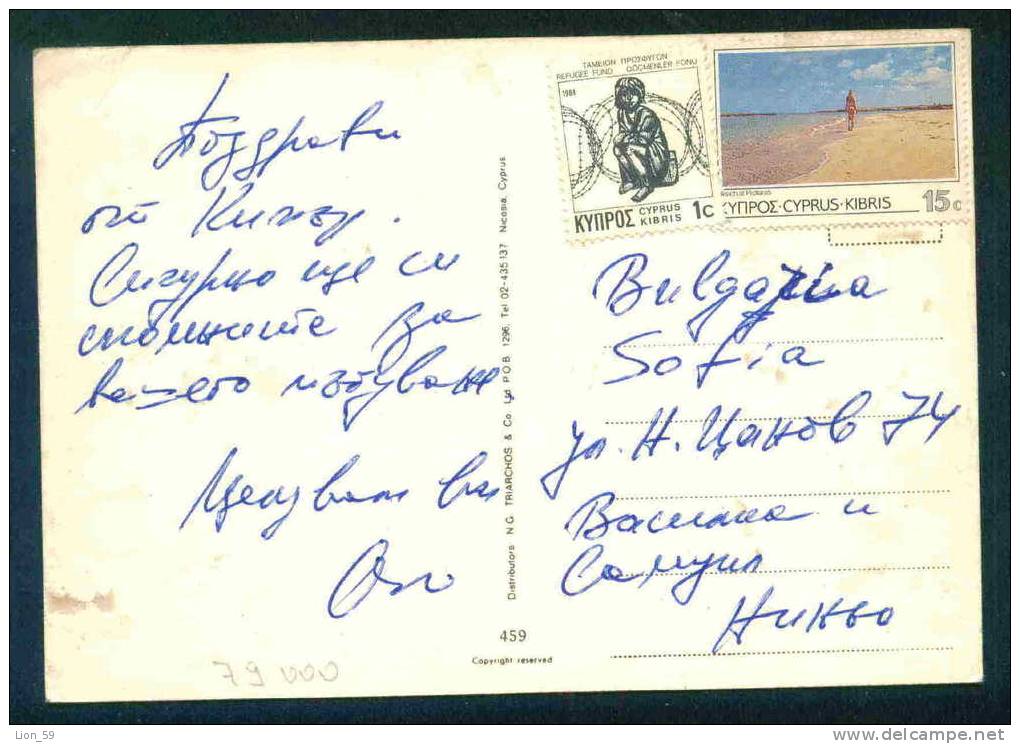 Поздрави
от Кипър.
Сигурно ще си
спомните за
вашето пътуване,
Целувам ви
ТАМΕΙΟΝ ΠΡΟΣΦΥΓΩΝ
REFUGEE FUND GÖÇMENLER FONU
1988
ΚΥΠΡΟΣ CYPRUS KIBRIS 1c
ΚΥΠΡΟΣ·CYPRUS·KIBRIS 15c
Bulgaria
Sofia
ул. Н. Цанов 74
Василка и
Самуил
Distributors N.G. TRIARCHOS & Co. Ltd P.O.B. 1296, Tel 02-435137 Nicosia, Cyprus
459
Copyright reserved
79 000
Lion_59
www.delcampe.net